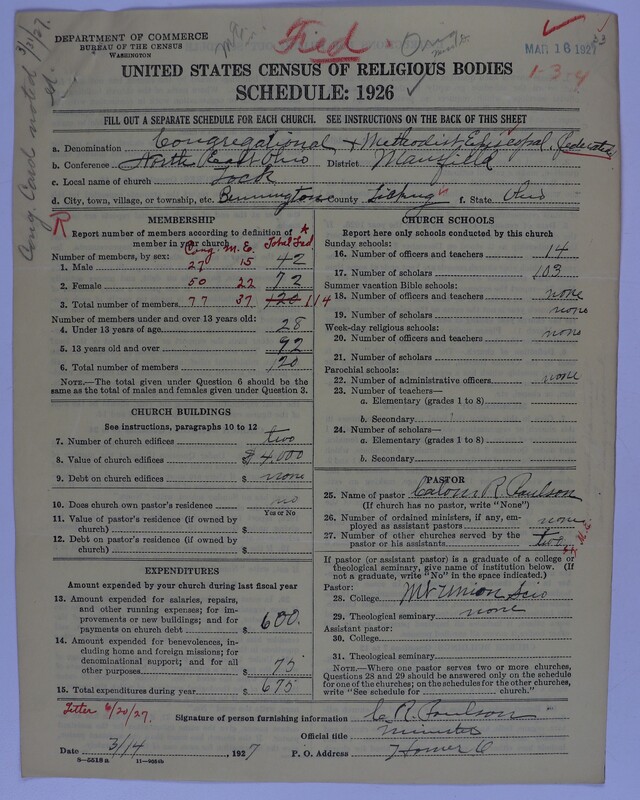 DEPARTMENT OF COMMERCE
BUREAU OF THE CENSUS
WASHINGTON
Fed
Orig
MAR 16 1927
1-3-4
Cong Card noted 3/31/27.
UNITED STATES CENSUS OF RELIGIOUS BODIES
SCHEDULE: 1926
FILL OUT A SEPARATE SCHEDULE FOR EACH CHURCH. SEE INSTRUCTIONS ON THE BACK OF THIS SHEET
a. Denomination Congregational + Methodist Episcopal Federated
b. Conference North East Ohio District Mansfield
c. Local name of church Lock
d. City, town, village, or township, etc. Bennington county Licking f. State Ohio
R
MEMBERSHIP
Report number of members according to definition of member in your church
Cong M. E. Total Fed.
Number of members, by sex:
1. Male 27 15 42
2. Female 50 22 72
3. Total number of members 77 37 120 114
Number of members under and over 13 years old:
4. Under 13 years of age 28
5. 13 years old and over 92
6. Total number of members 120
NOTE.—The total given under Question 6 should be the same as the total of males and females given under Question 3.
CHURCH BUILDINGS
See instructions, paragraphs 10 to 12
7. Number of church edifices two
8. Value of church edifices $ 4,000
9. Debt on church edifices $ none
10. Does church own pastor's residence no
Yes or No
11. Value of pastor's residence (if owned by church) $
12. Debt on pastor's residence (if owned by church) $
EXPENDITURES
Amount expended by your church during last fiscal year
13. Amount expended for salaries, repairs, and other running expenses; for improvements or new buildings; and for payments on church debt $ 600.
14. Amount expended for benevolences, including home and foreign missions; for denominational support; and for all other purposes $ 75
15. Total expenditures during year $ 675
CHURCH SCHOOLS
Report here only schools conducted by this church
Sunday schools:
16. Number of officers and teachers 14
17. Number of scholars 103
Summer vacation Bible schools:
18. Number of officers and teachers none
19. Number of scholars none
Week-day religious schools:
20. Number of officers and teachers none
21. Number of scholars
Parochial schools:
22. Number of administrative officers none
23. Number of teachers—
a. Elementary (grades 1 to 8)
b. Secondary
24. Number of scholars—
a. Elementary (grades 1 to 8)
b. Secondary
PASTOR
25. Name of pastor R. Poulson
(If church has no pastor, write "None")
26. Number of ordained ministers, if any, employed as assistant pastors none
27. Number of other churches served by the pastor or his assistants two
If pastor (or assistant pastor) is a graduate of a college or theological seminary, give name of institution below. (If not a graduate, write "No" in the space indicated.)
Pastor:
28. College Mt Union Scio
29. Theological seminary none
Assistant pastor:
30. College
31. Theological seminary
NOTE.—Where one pastor serves two or more churches, Questions 28 and 29 should be answered only on the schedule for one of the churches; on the schedules for the other churches, write "See schedule for church."
Letter 6/20/27.
Signature of person furnishing information C. R. Poulson
Official title Minister
Date 3/14, 1927 P. O. Address Homer O
8—5518a 11—9054b